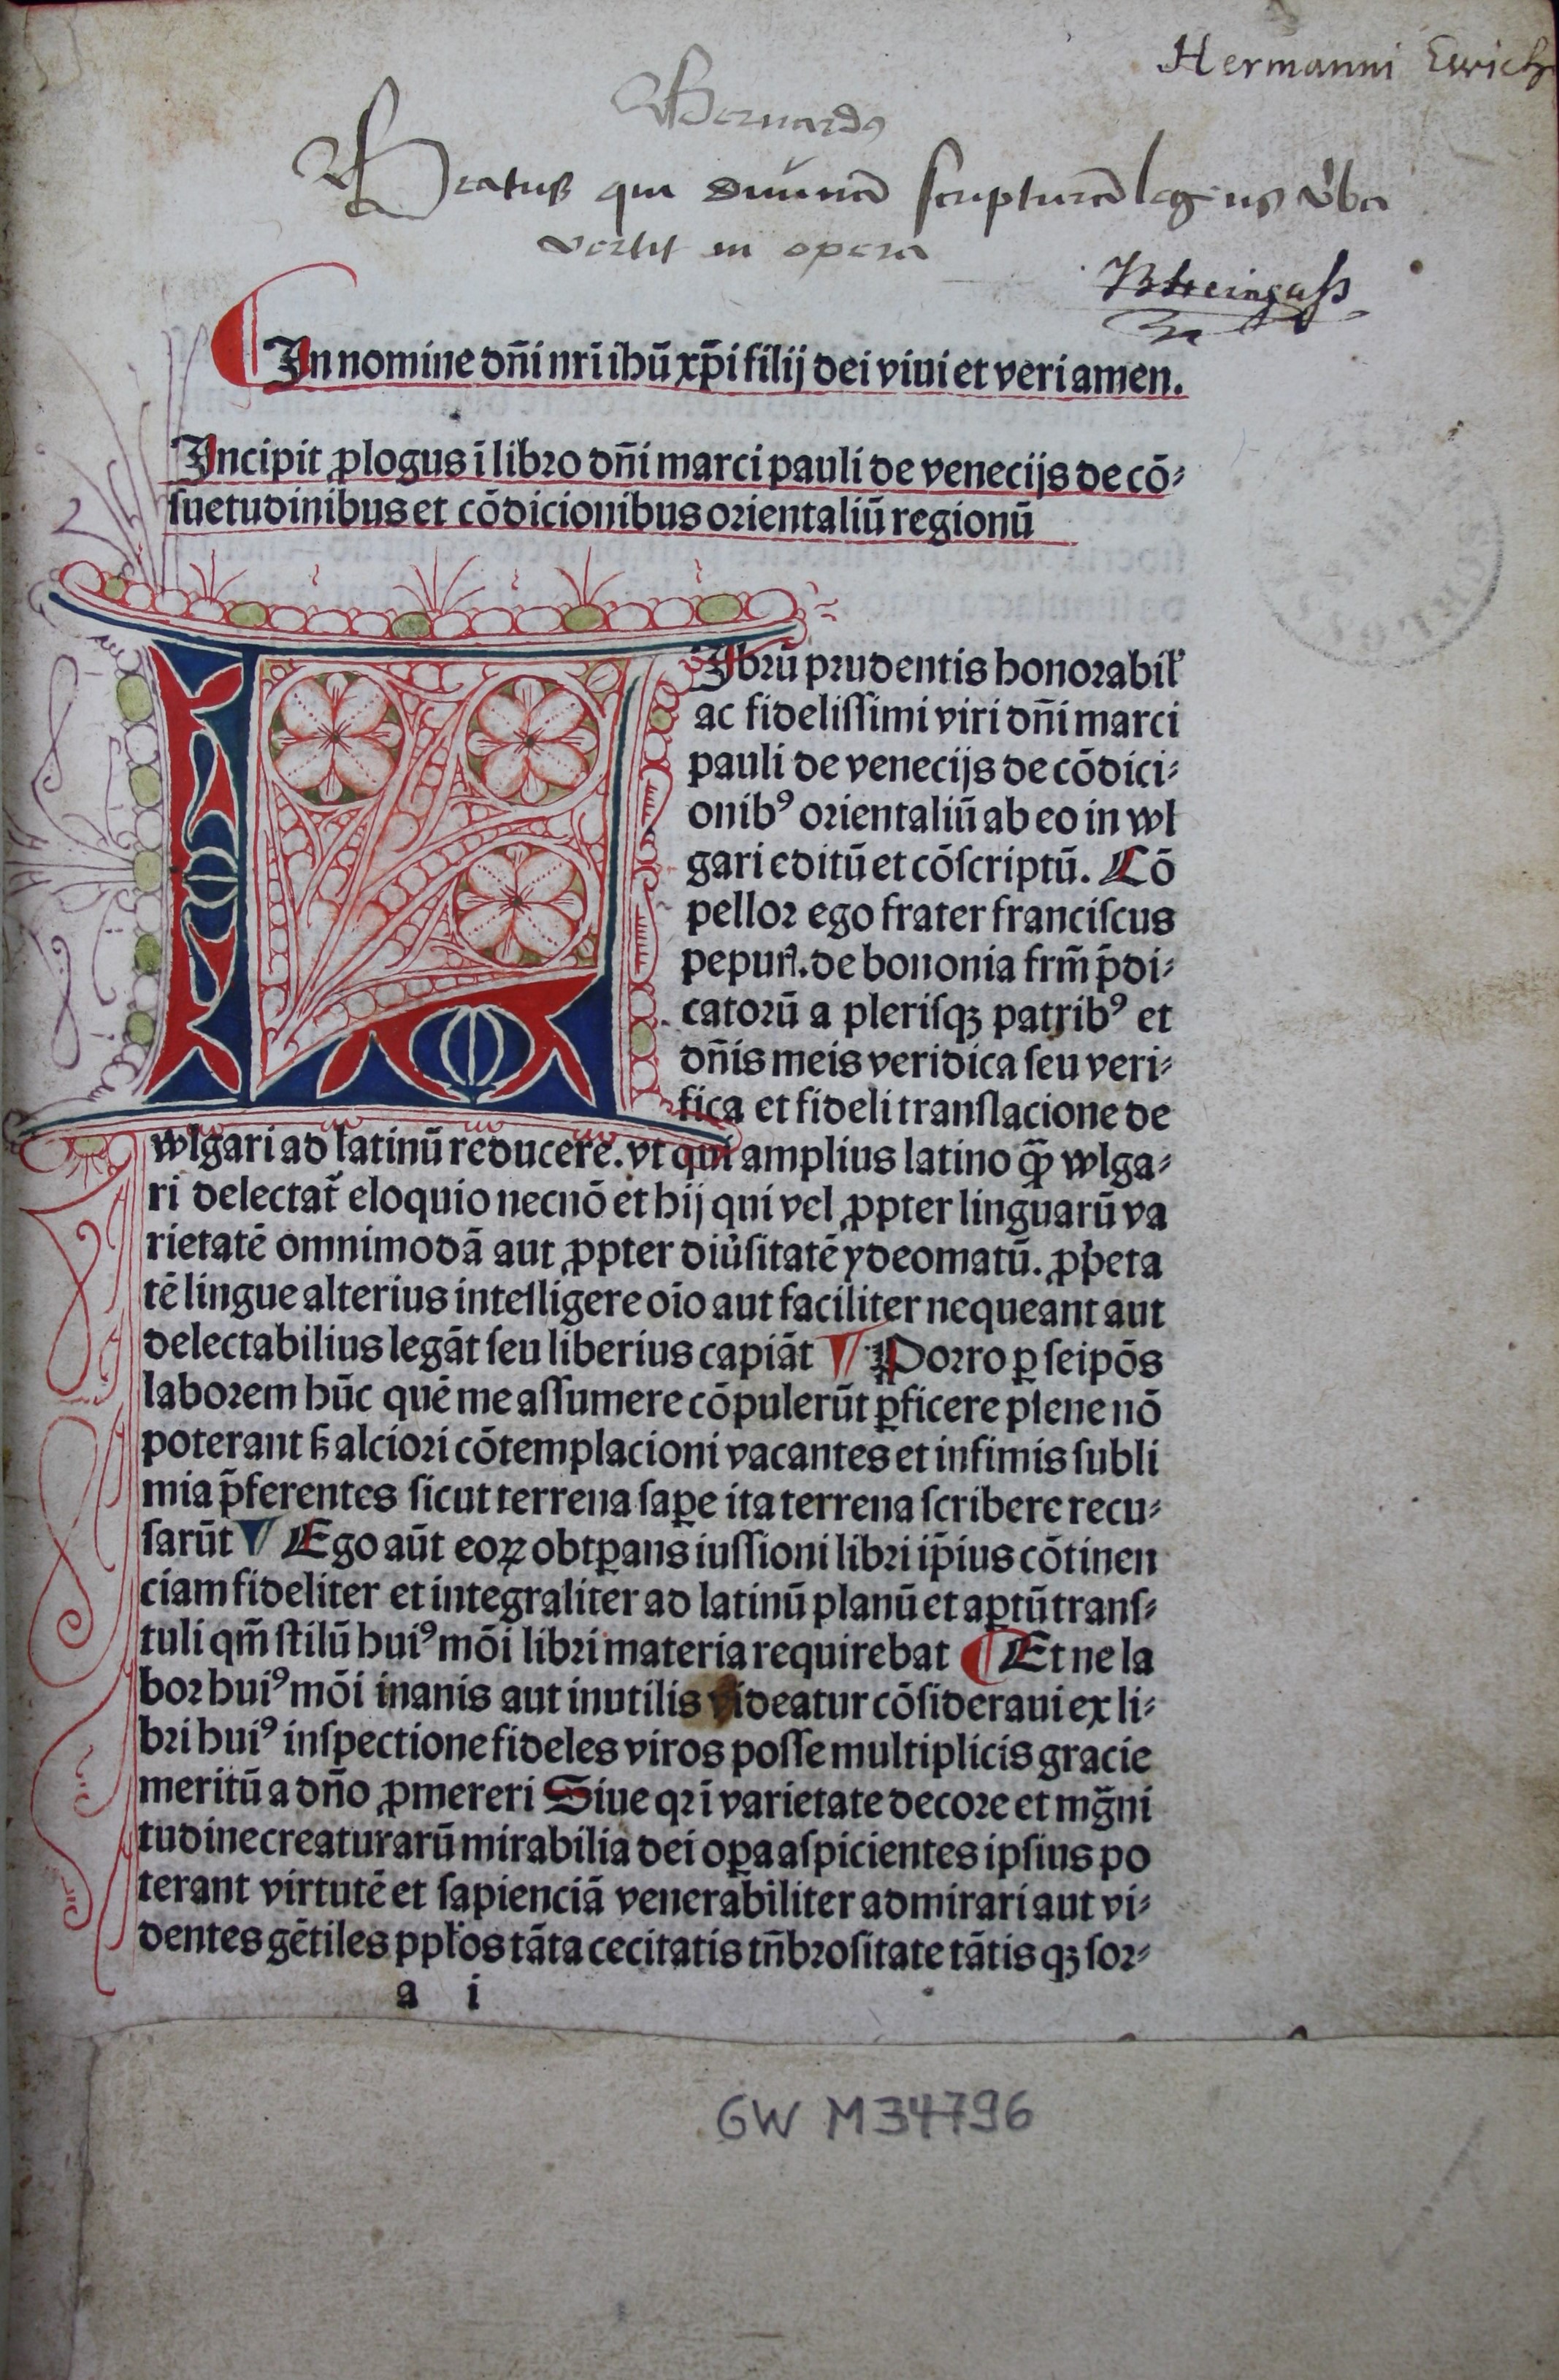 Hermanni Ewich
Bernardus
Beatus qui diuinā scripturā legens v̓ba
vertit in opera
In nomine dn̄i nr̄i ihū xp̄i filij dei viui et veri amen.
Incipit ꝓlogus ī libro dn̄i marci pauli de venecijs de cō⸗
suetudinibus et cōdicionibus orientaliū regionū
LIbrū prudentis honorabil̓
ac fidelissimi viri dn̄i marci
pauli de venecijs de cōdici⸗
onibꝰ orientaliū ab eo in wl
gari editū et cōscriptū. Cō
pellor ego frater franciscus
pepur̄. de bononia frm̄ p̄di⸗
catorū a plerisqꝫ patribꝰ et
dn̄is meis veridica seu veri⸗
fica et fideli translacione de
wlgari ad latinū reducere. vt qui amplius latino qꝫ̄ wlga⸗
ri delectat̄ eloquio necnō et hij qui vel ꝓpter linguarū va
rietatē omnimodā aut ꝓpter diu̓sitatē ydeomatū. ꝓpͥeta
tē lingue alterius intelligere oīo aut faciliter nequeant aut
delectabilius legāt seu liberius capiāt ¶ Porro ꝑ seipōs
laborem hūc quē me assumere cōpulerūt ꝑficere plene nō
poterant sꝫ alciori cōtemplacioni vacantes et infimis subli
mia p̄ferentes sicut terrena saꝑe ita terrena scribere recu⸗
sarūt ¶ Ego aūt eoꝝ obtꝑans iussioni libri ip̄ius cōtinen
ciam fideliter et integraliter ad latinū planū et aꝑtū trans⸗
tuli qm̄ stilū huiꝰmōi libri materia requirebat ¶ Et ne la
bor huiꝰmōi inanis aut inutilis videatur cōsideraui ex li⸗
bri huiꝰ inspectione fideles viros posse multiplicis gracie
meritū a dn̄o ꝓmereri Siue qꝛ ī varietate decore et mḡni
tudine creaturarū mirabilia dei oꝑa aspicientes ipsius po
terant virtutē et sapienciā venerabiliter admirari aut vi⸗
dentes gētiles ppl̓os tāta cecitatis tn̄brositate tātisqꝫ sor⸗
a i
GW M34796